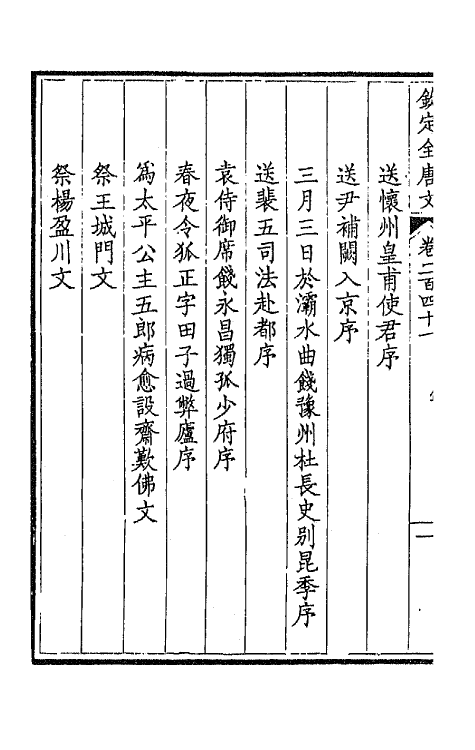 欽定全唐文 卷二百四十一 一
送懷州皇甫使君序
送尹補闕入京序
三月三日於灞水曲餞豫州杜長史别昆季序
送裴五司法赴都序
袁侍御席餞永昌獨孤少府序
春夜令狐正字田子過弊廬序
爲太平公主五郎病愈設齋歎佛文
祭王城門文
祭楊盈川文